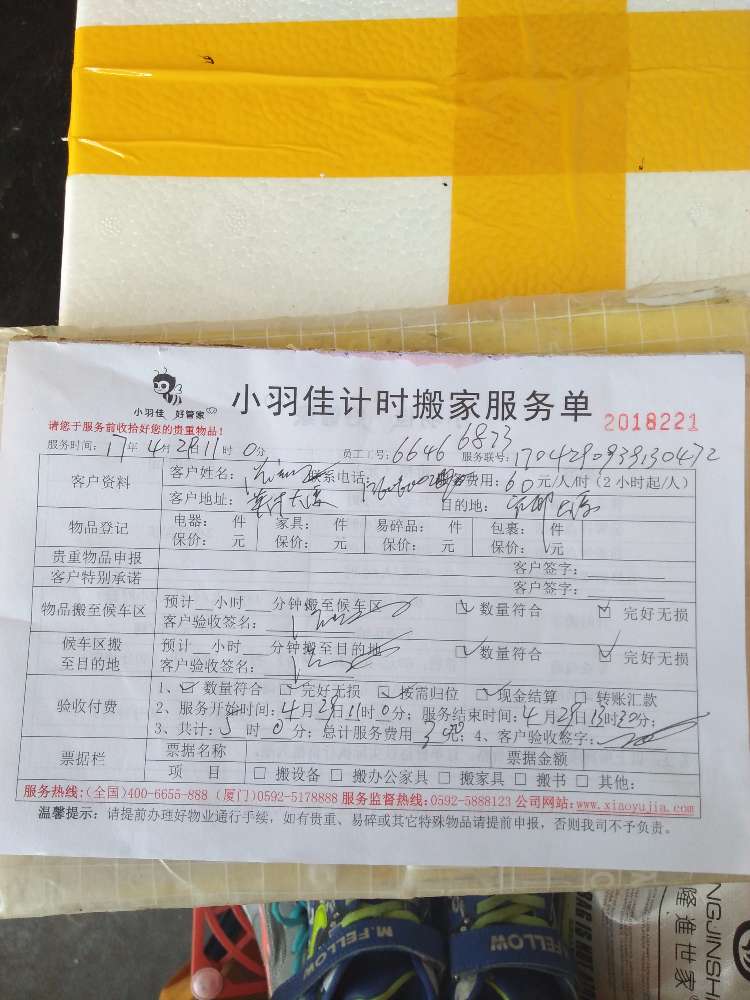 小羽佳 好管家
小羽佳计时搬家服务单 2018221
请您于服务前收拾好您的贵重物品!
服务时间: 17年 4月 29 11时 0分 员工工号: 6646 6873 服务联号: 170429093
客户资料 客户姓名: 联系电话: 费用: 60 元/人/时 (2小时起/人)
客户地址: 大厦 目的地: 大厦
物品登记 电器: 件 家具: 件 易碎品: 件 包裹: 件
保价: 元 保价: 元 保价: 元 保价: 元
贵重物品申报 客户签字:
客户特别承诺 客户签字:
物品搬至候车区 预计__小时___分钟搬至候车区 ☑ 数量符合 ☑ 完好无损
客户验收签名:
候车区搬至目的地 预计__小时___分钟搬至目的地 ☑ 数量符合 ☑ 完好无损
客户验收签名:
验收付费 1、☑ 数量符合 ☑ 完好无损 ☑ 按需归位 ☑ 现金结算 □ 转账汇款
2、服务开始时间: 4月29日11时0分; 服务结束时间: 4月29日13时30分;
3、共计: 时 0分; 总计服务费用 元; 4、客户验收签字:
票据栏 票据名称 票据金额
项 目 □ 搬设备 □ 搬办公家具 □ 搬家具 □ 搬书 □ 其他:
服务热线:(全国)400-6655-888 (厦门)0592-5178888 服务监督热线:0592-5888123 公司网站:www.xiaoyujia.com
温馨提示: 请提前办理好物业通行手续, 如有贵重、易碎或其它特殊物品请提前申报, 否则我司不予负责。
M.FELLOW
FELLOW
NGJINSH
隆进世家